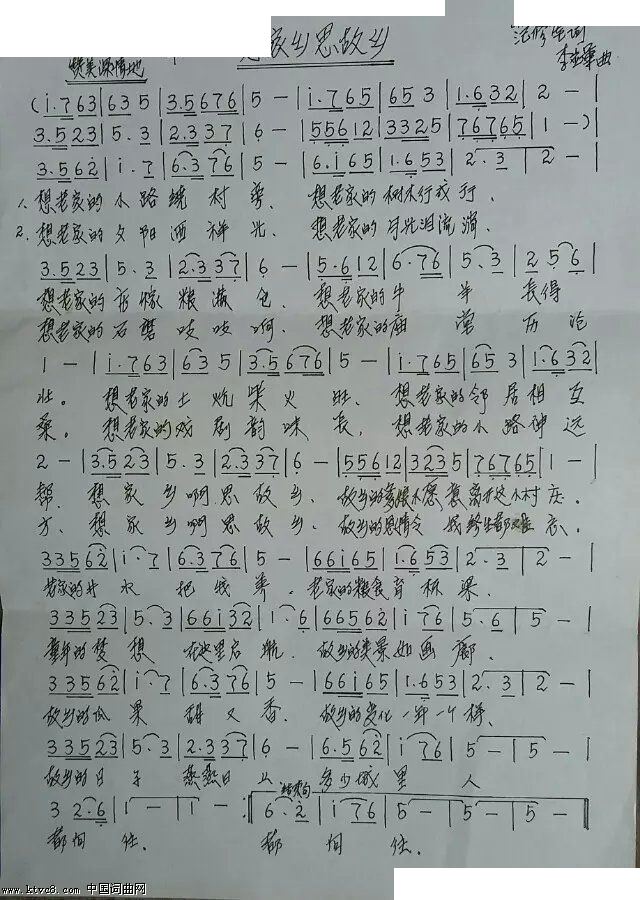 家乡思故乡
赞美深情地
词
李 曲
(i.763|635|3.5676|5 –|i.765|653|1.632|2 –|
3.523|5.3|2.337|6 –|55612|3325|76765|1 –)|
3.562|i.7|6.376|5 –|6.i65|1.653|2.3|2 –|
1. 想老家的小路绕村旁、想老家的树木行我行.
2. 想老家的夕阳洒祥光、想老家的月光泪流淌.
3.523|5.3|2.337|6 –|5.612|6.76|5.3|256|
想老家的 粮满仓、想老家的牛羊长得
想老家的石磨吱吱啊、想老家的庙堂历沧
1 –|i.763|635|3.5676|5 –|i.765|653|1.632|
壮。想老家的土炕柴火旺、想老家的邻居相互
桑。想老家的戏剧韵味长、想老家的小路伸远
2 –|3.523|5.3|2.337|6 –|55612|3235|76765|1 –|
帮、想家乡啊思故乡、故乡的 不愿离开这小村庄。
方、想家乡啊思故乡、故乡的恩情令我终生都难忘。
33562|i.7|6.376|5 –|66i65|1.653|2.3|2 –|
老家的井水把我养、老家的粮食育栋梁.
33523|5.3|66i32|1.6|66562|i76|5.6|5 –|
童年的梦想在这里启航、故乡的美景如画廊.
33562|i.7|6.376|5 –|66i65|1.653|2.3|2 –|
故乡的瓜果甜又香、故乡的变化一年一个样、
33523|5.3|2.337|6 –|6.562|i76|5 –|5 –|
故乡的日子 多少城里人
32.6|1 –|1 –:|6.2|i76|5 –|5 –|5 –|
结束句
都向往. 都向往.
www.ktvc8.com 中国词曲网